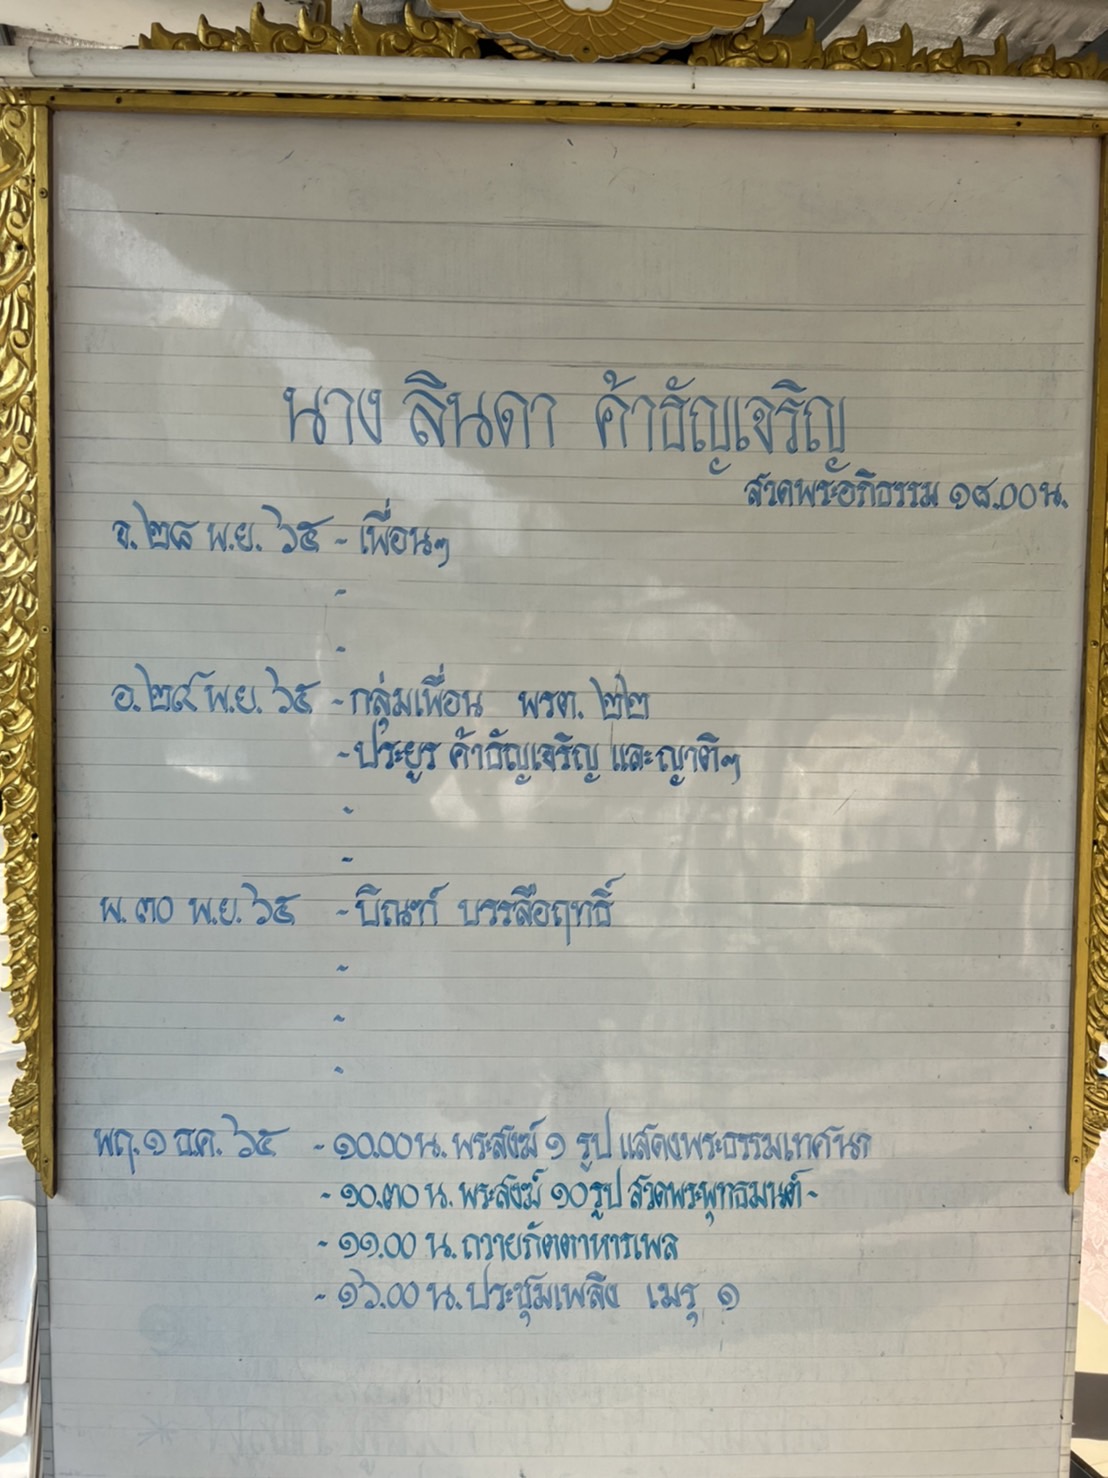 นาง ลินดา ค้าธัญเจริญ
สวดพระอภิธรรม ๑๘.๐๐ น.
จ. ๒๘ พ.ย. ๖๕ - เพื่อนๆ
-
-
อ. ๒๙ พ.ย. ๖๕ - กลุ่มเพื่อน พรต. ๒๒
- ประยูร ค้าธัญเจริญ และญาติๆ
-
-
พ. ๓๐ พ.ย. ๖๕ - บิณฑ์ บรรลือฤทธิ์
-
-
-
พฤ. ๑ ธ.ค. ๖๕ - ๑๐.๐๐ น. พระสงฆ์ ๑ รูป แสดงพระธรรมเทศนา
- ๑๐.๓๐ น. พระสงฆ์ ๑๐ รูป สวดพระพุทธมนต์ -
- ๑๑.๐๐ น. ถวายภัตตาหารเพล
- ๑๖.๐๐ น. ประชุมเพลิง เมรุ ๑